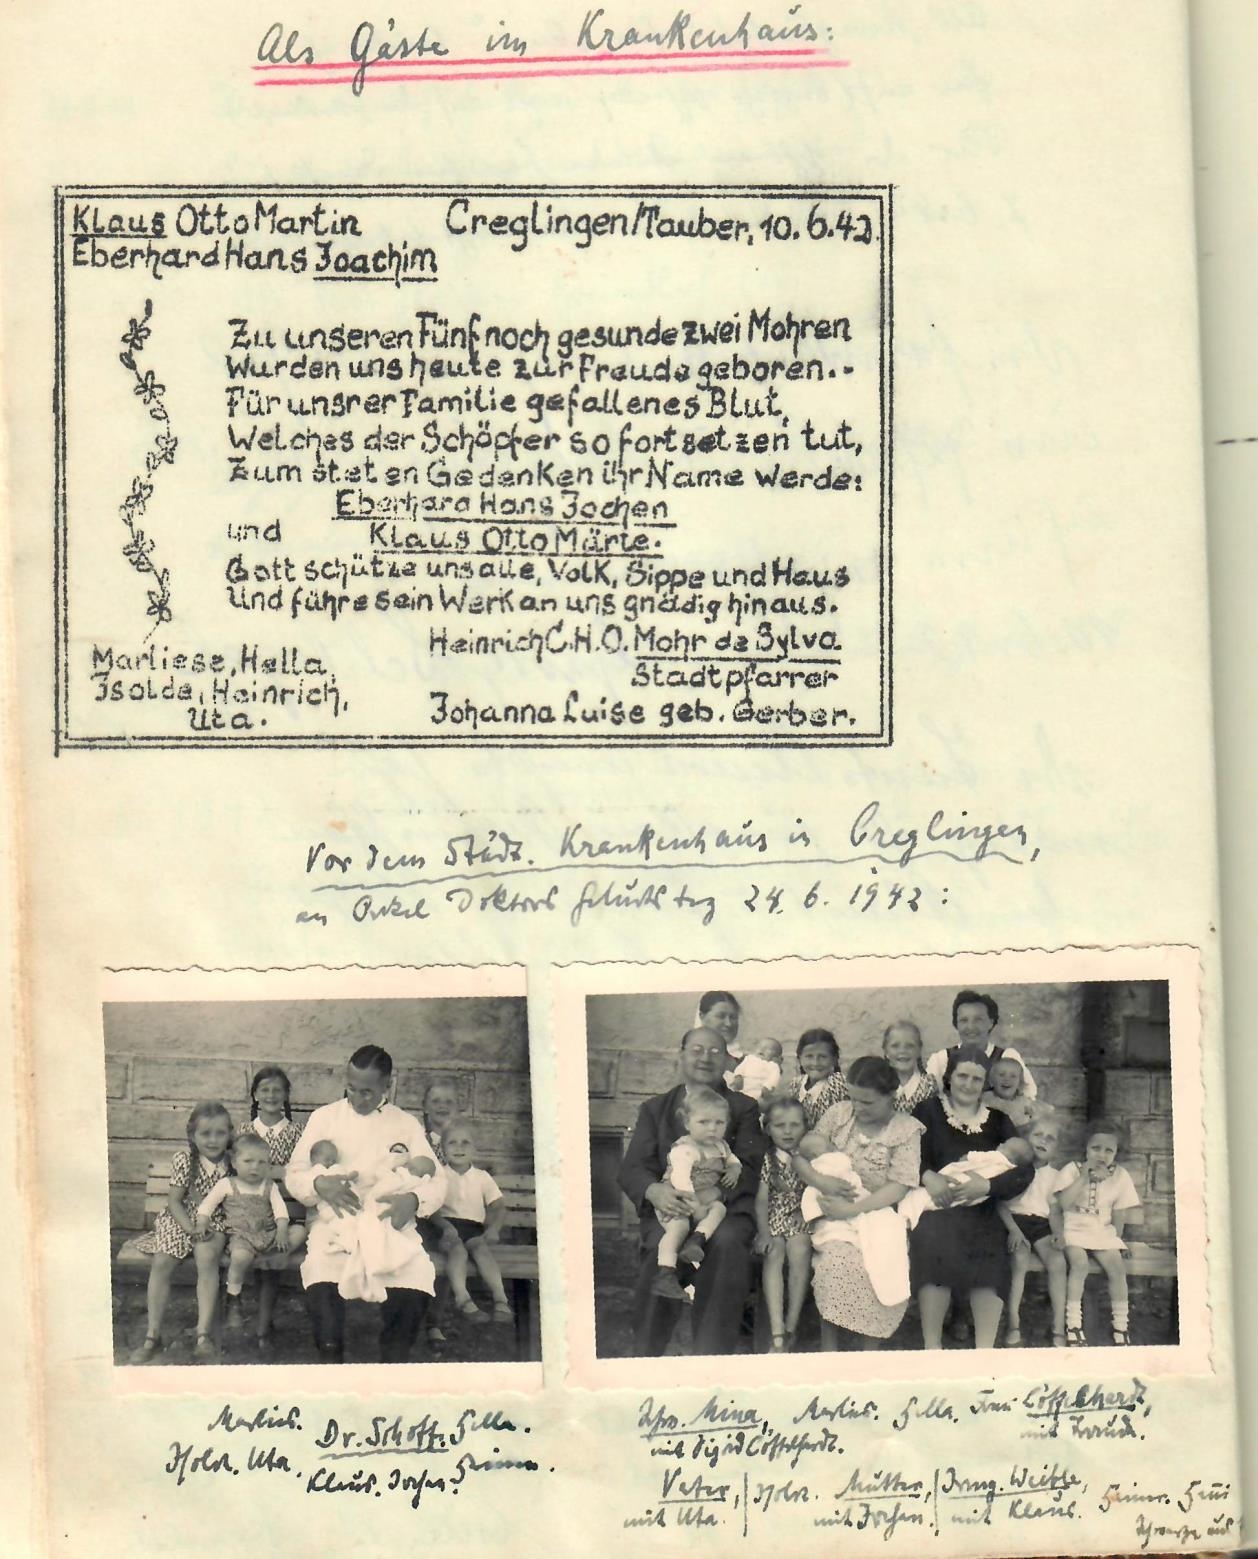 Als Gäste im Krankenhaus:
Klaus Otto Martin Creglingen/Tauber, 10.6.42.
Eberhard Hans Joachim
Zu unseren Fünf noch gesunde zwei Mohren
Wurden uns heute zur Freude geboren..
Für unsrer Familie gefallenes Blut,
Welches der Schöpfer so fortsetzen tut,
Zum steten Gedenken ihr Name werde:
Eberhard Hans Jochen
und Klaus Otto Märte.
Gott schütze uns alle, Volk, Sippe und Haus
Und führe sein Werk an uns gnädig hinaus.
Heinrich C.H.O. Mohr de Sylva
Stadtpfarrer
Johanna Luise geb. Gerber.
Marliese, Hella,
Isolde, Heinrich,
Uta.
Vor dem Städt. Krankenhaus in Creglingen,
an Onkel Doktors Geburtstag 24.6.1942:
Marlies. Dr. Schoff. Hella.
Isolde. Uta. Klaus. Jochen. Heiner.
Mina, Marlies. Hella. Frau Löffelhardt,
mit Sigrid Löffelhardt. mit Traude.
Vater, Isolde. Mutter, Irmg. Weible, Heiner.
mit Uta. mit Jochen. mit Klaus.